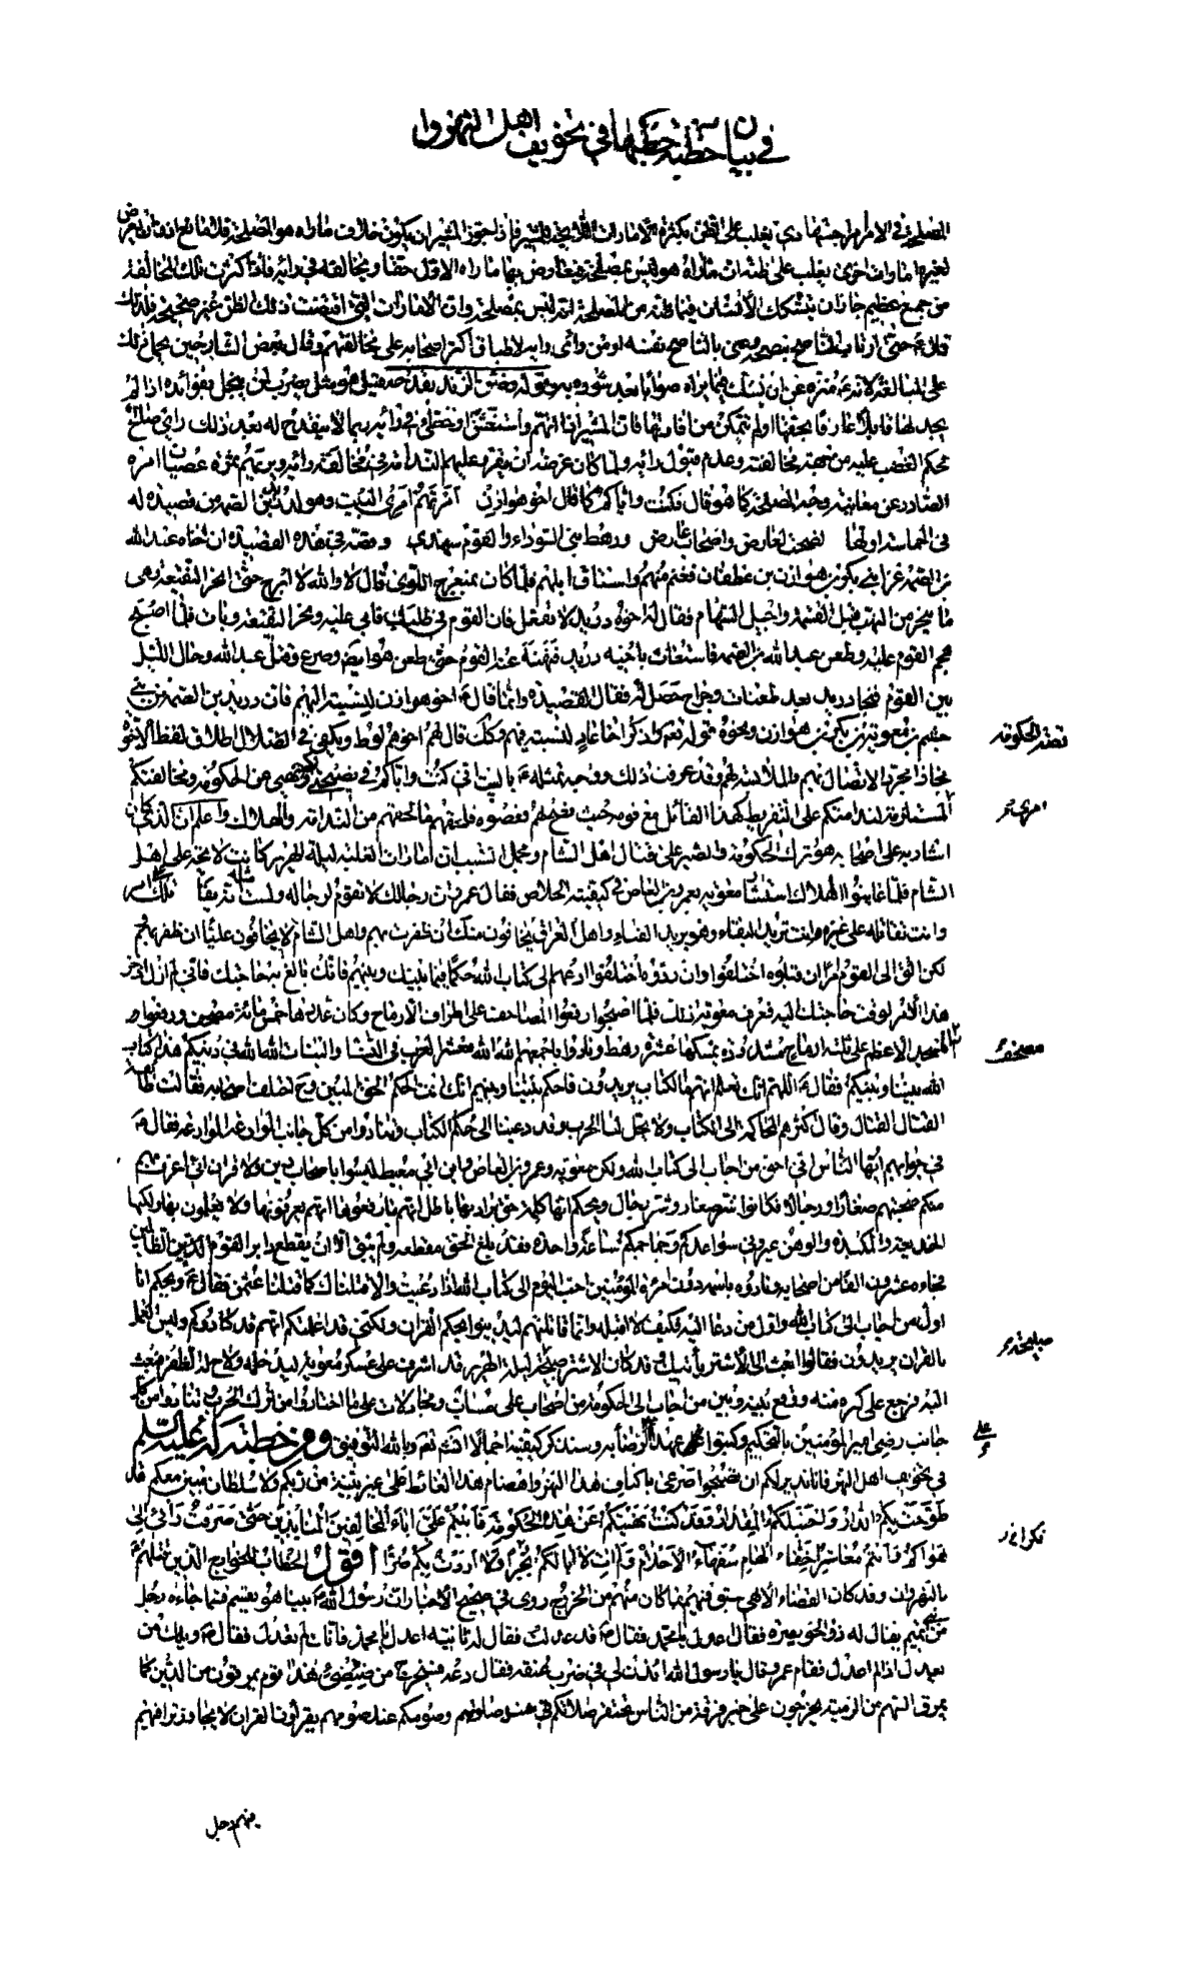 في بيان خطبة خطبها في تخويف اهل النهروان
المصلحة في الامر امر اجتهادي يغلب على الظن بكثرة الامارات للشخص المشير فاذا جوز المشير ان يكون خلاف ما راه هو المصلحة فلا مانع اذن ان يعرض
لغيره امارات اخرى يغلب على ظنه ان ما راه هو ليس بمصلحة فيعارض بها ما راه الاول حقا ويخالفه في رائه فاذا كثرت تلك المخالفة
من جمع عظيم جاز ان يتشكك الانسان فيما ظنه من المصلحة انه ليس بمصلحة وان الامارات التي اقتضت ذلك الظن غير صحيحة فلذلك
قال ع حتى ارتاب الناصح بنصحه وعنى بالناصح نفسه او من رائى رايه لاطباق اكثر اصحابه على مخالفتهم وقال بعض الشارحين يحمل ذلك
على المبالغة لانه ع منزه عن ان يشك فيما يراه صوابا بعد شوره به وقوله وضن الزند بقدحه قيل هو مثل يضرب لمن يبخل بفوائده اذا لم
يجد لها قابلا عارفا بحقها او لم يتمكن من افادتها فان المشير اذا اتهم واستغش او خطئ في رائه ربما لا ينقدح له بعد ذلك راى صالح
لحكم الغضب عليه من جهة مخالفته وعدم قبول رايه ولما كان غرضه ان يقرر عليهم الندامة في مخالفة رائه ويريهم ثمرة عصيان امره
الصادر عن معاينة وجه المصلحة كما هو قال فكنت واياكم كما قال اخو هوازن امرتكم امري البيت وهو لدريد بن الصمة من قصيدة له
في الحماسة اولها نصحت لعارض واصحاب عارض ورهط بني السوداء والقوم شهدي وقصته في هذه القصيدة ان اخاه عبد الله
بن الصمة غزا بني بكر بن هوازن بن غطفان فغنم منهم واستاق ابلهم فلما كان بمنعرج اللوى قال لا والله لا ابرح حتى انحر النقيعة وهي
ما ينحر من النهب قبل القسمة واجيل السهام فقال له اخوه دريد لا تفعل فان القوم في طلبك فابى عليه ونحر النقيعة وبات فلما اصبح
هجم القوم عليه وطعن عبد الله بن الصمة فاستغاث باخيه دريد فنهنه عنه القوم حتى طعن هو ايضا وصرع وقتل عبد الله وحال الليل
بين القوم فنجا دريد بعد طعنات وجراح حصل له فقال القصيدة وانما قال ع اخو هوازن لنسبته اليهم فان دريد بن الصمة من بني
جشم بن معوية بن بكر بن هوازن ونحوه قوله تعالى واذكر اخا عاد لنسبته فيهم وكك قال لهم اخوهم لوط ويكفى في اطلاق لفظ الاخوة
مجازا مجرد الاتصال بهم والملابسة لهم وقد عرفت ذلك ووجه تمثله ع بالبيت اني كنت واياكم في نصيحتي ونهيي عن الحكومة ومخالفتكم
المستلزمة لندامتكم على التفريط كهذا القائل مع قومه حيث نصح لهم فعصوه فلحقهم من الندامة والهلاك واعلم ان الذي كان
اشار به على اصحابه هو ترك الحكومة والصبر على قتال اهل الشام ومجمل السبب ان امارات الغلبة ليلة الهرير كانت لائحة على اهل
الشام فلما عاينوا الهلاك استشار معوية بعمرو بن العاص في كيفية الخلاص فقال عمرو ان رجالك لا تقوم لرجاله ولست مثله
وانت تقاتله على غيره وانت تريد البقاء وهو يريد الفناء واهل العراق يخافون منك ان ظفرت بهم واهل الشام لا يخافون عليا ان ظفر بهم
لكن الق الى القوم امرا ان قبلوه اختلفوا وان ردوه اختلفوا ادعهم الى كتاب الله حكما فيما بينك وبينهم فانك بالغ به حاجتك فاني لم ازل ادخر
هذا الامر لوقت حاجتك اليه فعرف معوية ذلك فلما اصبحوا رفعوا المصاحف على اطراف الارماح وكان عددها خمس مائة مصحف ورفعوا
المسجد الاعظم على ثلثة ارماح مشدودة يمسكها عشرة رهط ونادوا باجمعهم الله الله معشر العرب في النساء والبنات الله الله في دينكم هذا كتاب
الله بيننا وبينكم فقال ع اللهم انك تعلم انهم ما الكتاب يريدون فاحكم بيننا وبينهم انك انت الحكم الحق المبين وح اختلف اصحابه فقالت طائفة
القتال القتال وقال اكثرهم المحاكمة الى الكتاب ولا يحل لنا الحرب وقد دعينا الى حكم الكتاب وتنادوا من كل جانب الموادعة الموادعة فقال ع
في جوابهم ايها الناس اني احق من اجاب الى كتاب الله ولكن معوية وعمرو بن العاص وابن ابي معيط ليسوا باصحاب دين ولا قران اني اعرف بهم
منكم صحبتهم صغارا ورجالا فكانوا شر صغار وشر رجال ويحكم انها كلمة حق يراد بها باطل انهم ما رفعوها انهم يعرفونها ولا يعملون بها ولكنها
الخديعة والمكيدة والوهن اعيروني سواعدكم وجماجمكم ساعة واحدة فقد بلغ الحق مقطعه ولم يبق الا ان يقطع دابر القوم الذين ظلموا
فجاءه عشرون الفا من اصحابه ونادوه باسمه دون امرة المؤمنين اجب القوم الى كتاب الله اذا دعيت والا قتلناك كما قتلنا عثمن فقال ع ويحكم انا
اول من اجاب الى كتاب الله واول من دعا اليه فكيف لا اقبله وانما قاتلتهم ليدينوا بحكم القران ولكني قد اعلمتكم انهم قد كادوكم وليس العمل
بالقران يريدون فقالوا ابعث الى الاشتر يأتيك وقد كان الاشتر صبيحة ليلة الهرير قد اشرف على عسكر معوية ليدخله ولاح له الظفر فبعث
اليه فرجع على كره منه ووقع بينه وبين من اجاب الى الحكومة من اصحاب على مساب ومجادلات على ما اختاروا من ترك الحرب وتنادوا من كل
جانب رضي امير المؤمنين بالتحكيم وكتبوا عهدا على الرضا به وسنذكر كيفيته اجمالا ان شاء الله تعالى وبالله التوفيق ومن خطبة له عليه السلم
في تخويف اهل النهر فانا نذير لكم ان تصبحوا صرعى باكناف هذا النهر واهضام هذا الغائط على غير بينة من ربكم ولا سلطان مبين معكم قد
طوحت بكم الدار واحتبلكم المقدار وقد كنت نهيتكم عن هذه الحكومة فابيتم علي اباء المخالفين المنابذين حتى صرفت رائي الى
هواكم وانتم معاشر اخفاء الهام سفهاء الاحلام ولم ات لا ابا لكم بجرا ولا اردت بكم ضرا اقول الخطاب للخوارج الذين قتلهم ع
بالنهروان وقد كان القضاء الالهي سبق فيهم بما كان منهم من الخروج روى في صحيح الاخبار ان رسول الله ص بينا هو يقسم قسما جاءه رجل
من بني تميم يقال له ذو الخويصرة فقال اعدل يا محمد فقال ص قد عدلت فقال له ثانية اعدل يا محمد فانك لم تعدل فقال ص ويلك من
يعدل اذا لم اعدل فقام عمر وقال يا رسول الله ائذن لي في ضرب عنقه فقال دعه فسيخرج من ضئضئ هذا قوم يمرقون من الدين كما
يمرق السهم من الرمية يخرجون على خير فرقة من الناس تحتقر صلاتكم في جنب صلوتهم وصومكم عند صومهم يقرأون القران لا يجاوز تراقيهم
قضية الحكومة
مصحف
صبيحة
نكرا
فيهم رجل